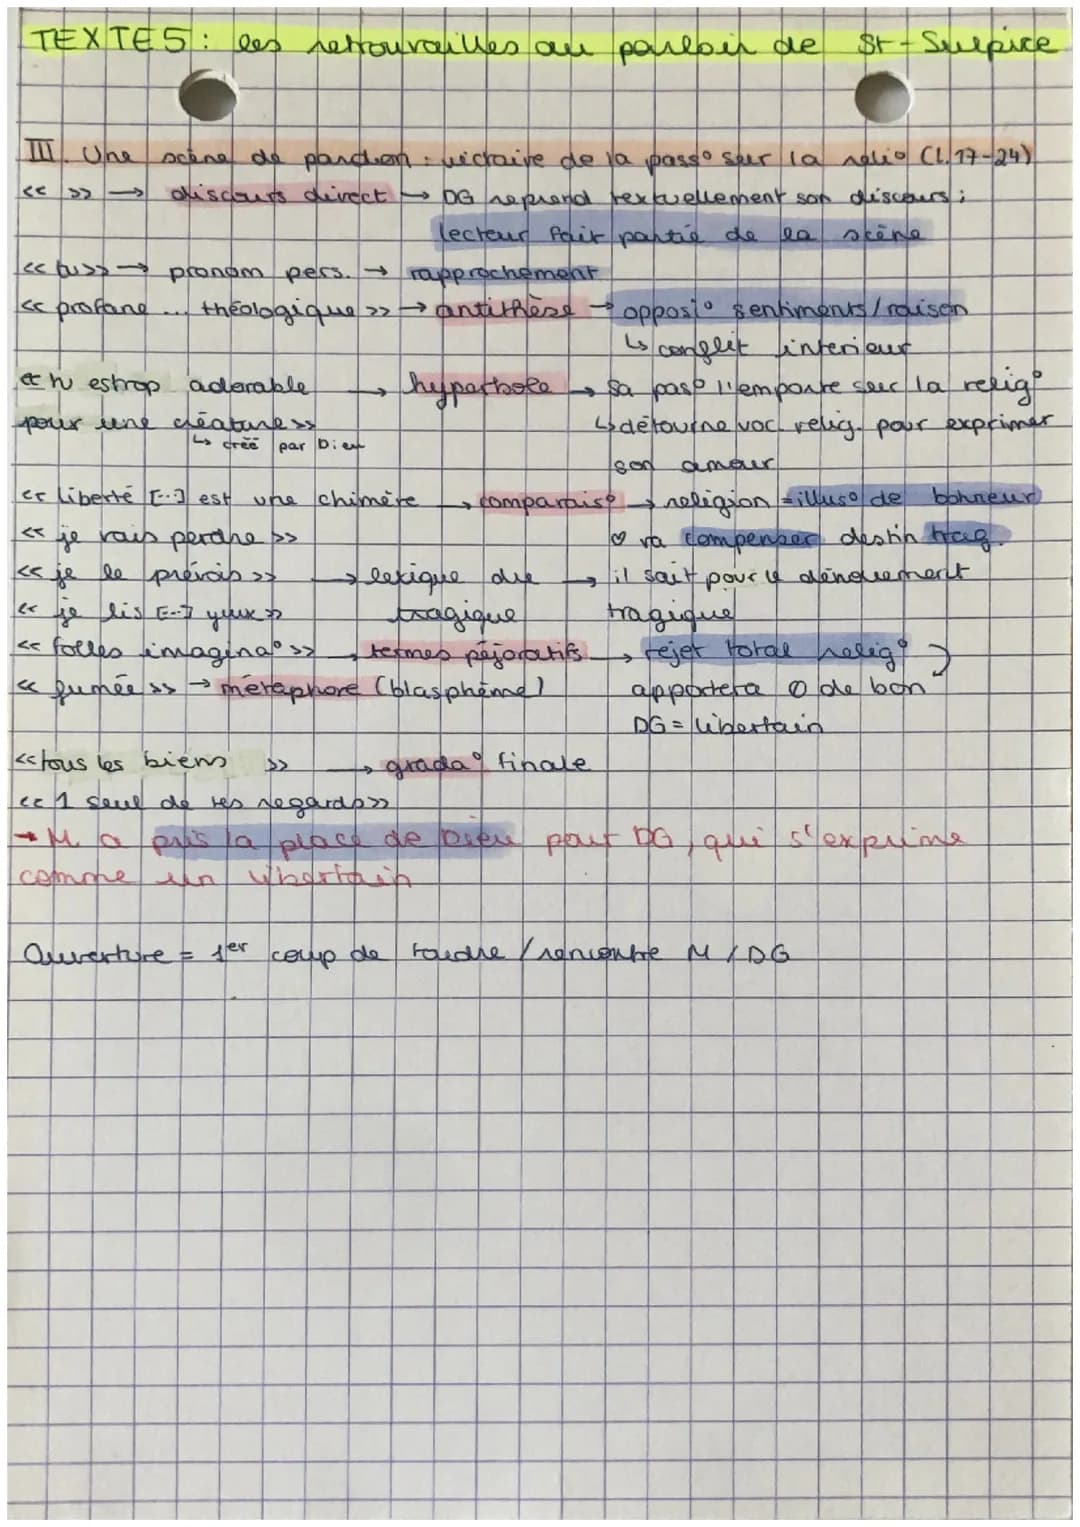 TEXTE 5 : les retrouvailles au parloir de St-Sulpice
III. Une scène de pardon : victoire de la pass° sur la relig° (l.17-24)
<< >> → discours direct → DG reprend textuellement son discours ;
lecteur fait partie de la scène
<< tu >> → pronom pers. → rapprochement
<< profane ... théologique >> → antithèse → opposi° sentiments / raison
↳ conflit interieur
<< tu es trop adorable → hyperbole → sa pas° l'emporte sur la relig°
pour une créature >> ↳ détourne voc. relig. pour exprimer
↳ créé par Dieu
son amour
<< liberté [...] est une chimère → comparais° → religion = illus° de bonheur
<< je vais perdre >> ♡ va compenser destin trag.
<< je le prévois >> → lexique du → il sait pour le dénouement
<< je lis [...] yeux >> tragique tragique
<< folles imagina° >> → termes péjoratifs → rejet total relig°
<< fumée >> → métaphore (blasphème) apportera 0 de bon
DG = libertain
<< tous les biens >> → grada° finale
<< 1 seul de tes regards >>
→ M. a pris la place de Dieu pour DG, qui s'exprime
comme un libertain
Ouverture = 1er coup de foudre / rencontre M / DG